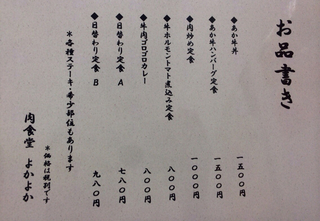 お品書き
◆あか牛丼 一五〇〇円
◆あか牛ハンバーグ定食 一五〇〇円
◆肉炒め定食 一〇〇〇円
◆牛ホルモントマト煮込み定食 八〇〇円
◆牛肉ゴロゴロカレー 八〇〇円
◆日替わり定食 A 七八〇円
◆日替わり定食 B 九八〇円
＊各種ステーキ・希少部位もあります
＊価格は税別です
肉食堂 よかよか